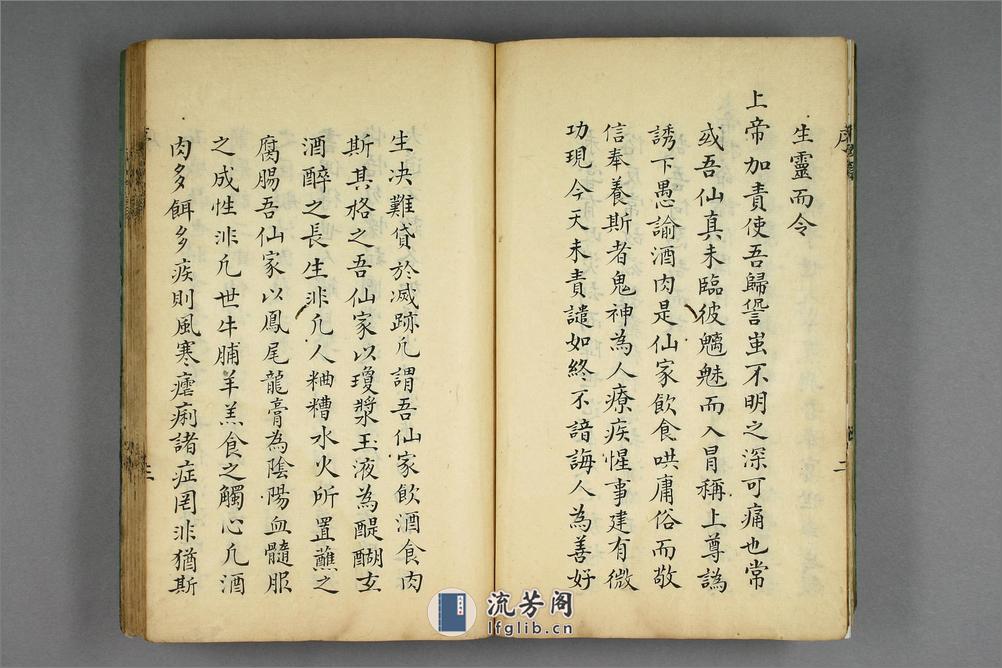 序
生靈而令
上帝加責使吾歸諐蚩不明之深可痛也常
或吾仙真未臨彼魑魅而入冒稱上尊譌
誘下愚諭酒肉是仙家飲食哄庸俗而敬
信奉養斯者鬼神為人療疾惺事建有微
功現今天未責譴如終不諳誨人為善好
二
生决難貸於滅跡凢謂吾仙家飲酒食肉
斯其格之吾仙家以瓊漿玉液為醍醐玄
酒醉之長生非凢人粬糟水火所置蘸之
腐腸吾仙家以鳳尾龍膏為陰陽血髓服
之成性非凢世牛脯羊羔食之觸心凢酒
肉多餌多疾則風寒瘧痢諸症罔非猶斯
流芳阁
lfglib.cn